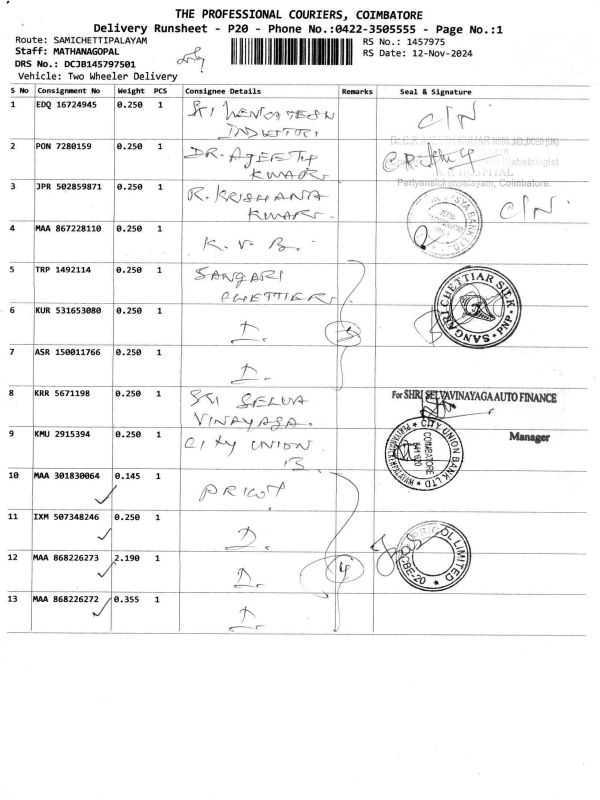 THE PROFESSIONAL COURIERS, COIMBATORE
Delivery Runsheet - P20 - Phone No.:0422-3505555 - Page No.:1
Route: SAMICHETTIPALAYAM
RS No.: 1457975
Staff: MATHANAGOPAL
RS Date: 12-Nov-2024
DRS No.: DCJB145797501
Vehicle: Two Wheeler Delivery
S No Consignment No Weight PCS Consignee Details Remarks Seal & Signature
1 EDQ 16724945 0.250 1 SRI VENCATESH
INDUSTRI
C/N
2 PON 7280159 0.250 1 DR. AJEETH
KUMAR.
HOSPITAL
Periyanaickenpalayam, Coimbatore.
3 JPR 502859871 0.250 1 R. KRISHANA
KUMAR.
C/N
4 MAA 867228110 0.250 1 K. V. B.
5 TRP 1492114 0.250 1 SANGARI
CHETTIER
SANGARI CHETTIAR SILK
PNP
6 KUR 531653080 0.250 1 D. 3
7 ASR 150011766 0.250 1 D.
8 KRR 5671198 0.250 1 SRI SELVA
VINAYAGA.
For SHRI SELVAVINAYAGA AUTO FINANCE
Manager
9 KMU 2915394 0.250 1 CITY UNION
B.
CITY UNION BANK LTD
COIMBATORE
641020
10 MAA 301830064 0.145 1 PRICOL
11 IXM 507348246 0.250 1 D.
12 MAA 868226273 2.190 1 D. 4
PRICOL LIMITED
CBE-20
13 MAA 868226272 0.355 1 D.